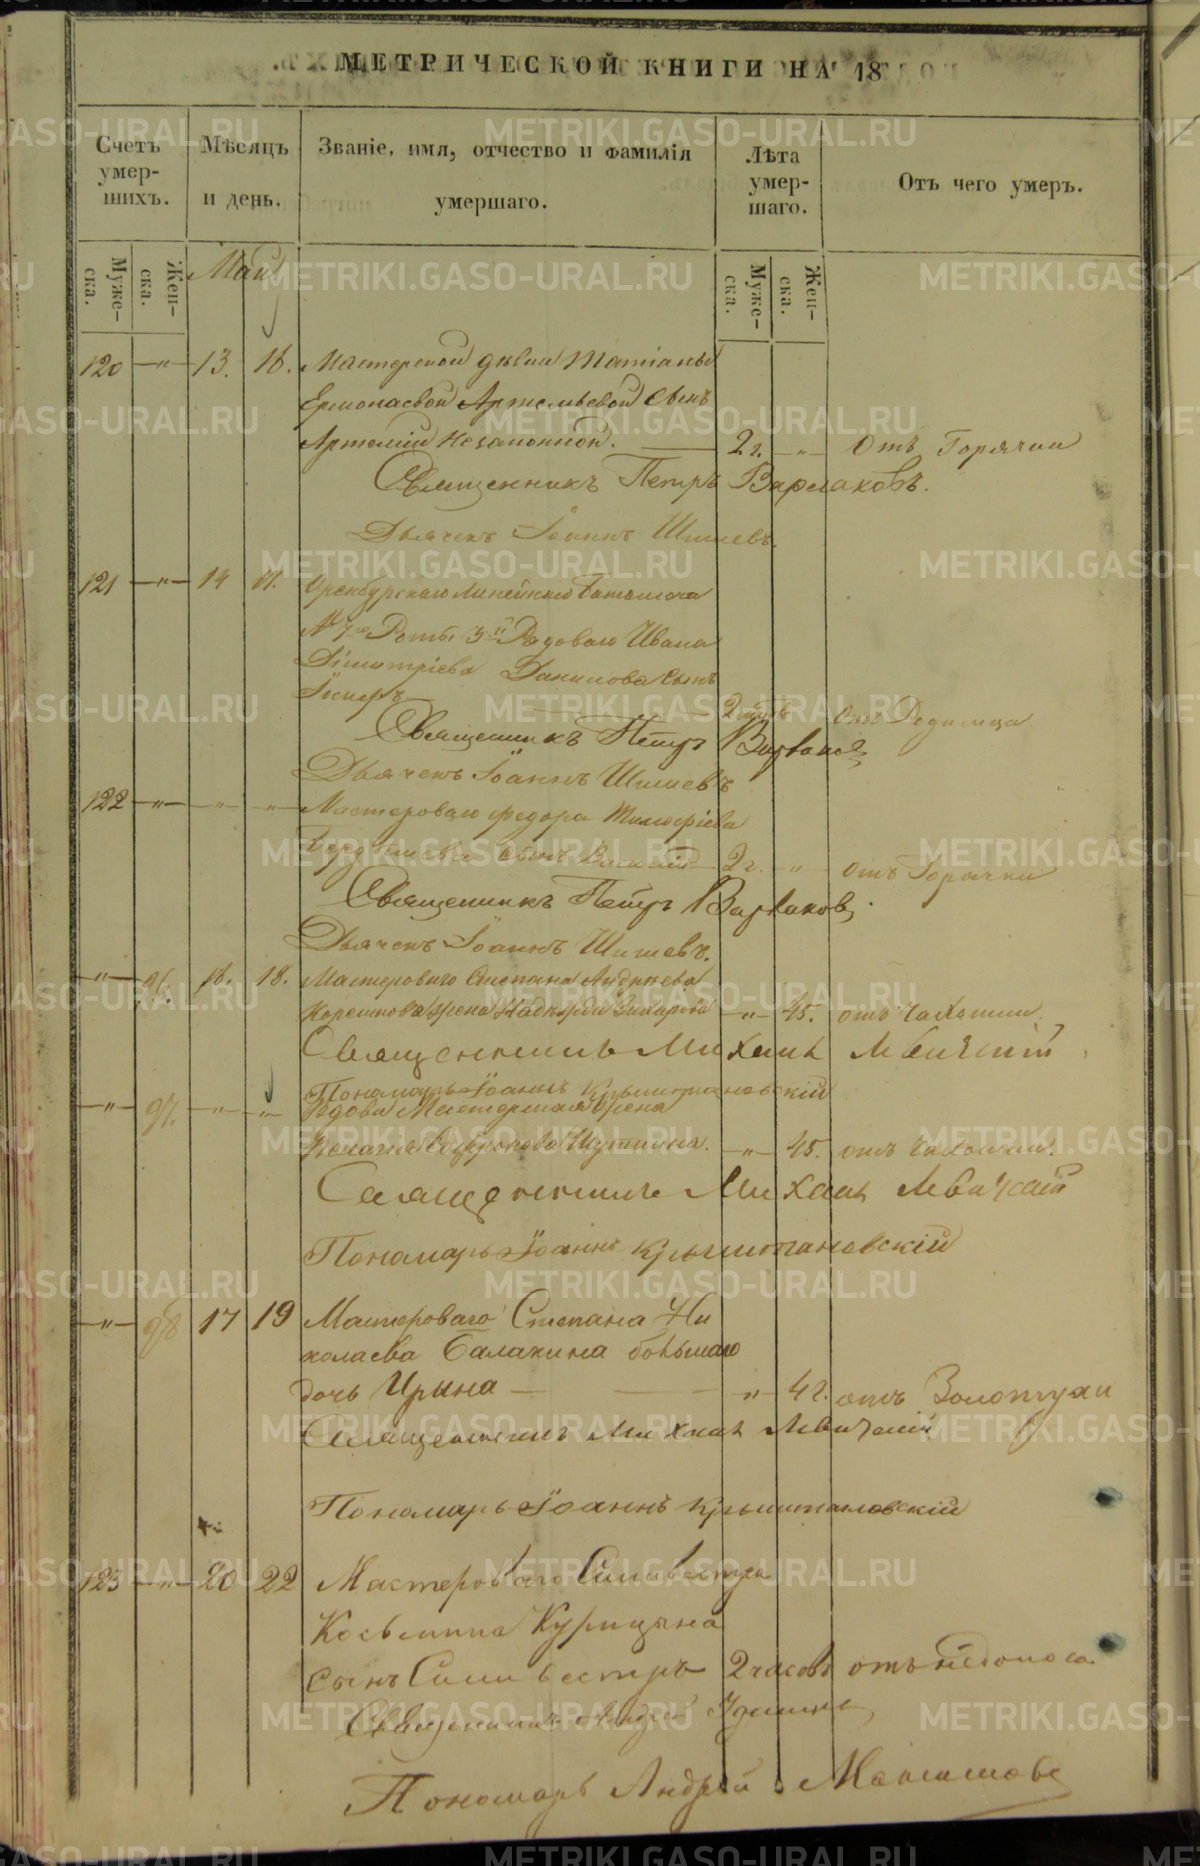 МЕТРИЧЕСКОЙ КНИГИ НА 18
Счетъ умер-шихъ. Мѣсяцъ и день. Званіе, имя, отчество и фамилія умершаго. Лѣта умер-шаго. Отъ чего умеръ.
Муже-ска. Жен-ска. Май Муже-ска. Жен-ска.
120 — " — 13. 16. Мастерской дѣвки Татіаны
Ермолаевой Артемьевой сынъ
Артемій незаконной. 2 г. " Отъ Горячки
Священникъ Петръ Варлаковъ.
Дьячекъ Іоаннъ Шишевъ.
121 — " — 14 17. Оренбургскаго Линейнаго Баталіона
№ Роты 3й Рядоваго Ивана
Димитріева Данилова сынъ
отъ Родимца
Священникъ Петръ Варлаковъ
Дьячекъ Іоаннъ Шишевъ
122 — " — " " Мастероваго Федора Тимофіева
сынъ Василій 2 г. " отъ Горячки
Священникъ Петръ Варлаковъ.
Дьячекъ Іоаннъ Шишевъ.
— " — 96. 16. 18. Мастероваго Степана Андреева
жена Надежда Захарова — " — 45. отъ Чахотки.
Священникъ Михаилъ Левитскій
Пономарь Іоаннъ Крыштановскій
— " — 97. " " Вдова Мастерская жена
Пелагія Софронова — " — 45. отъ Чахотки.
Священникъ Михаилъ Левитскій
Пономарь Іоаннъ Крыштановскій
— " — 98 17 19 Мастероваго Степана Ни
колаева Балакина большаго
дочь Ирына — " 4 г. отъ Золотухи
Священникъ Михаилъ Левитскій
Пономарь Іоаннъ Крыштановскій
123 — " — 20 22 Мастероваго Сильвестра
Косьмина Курицына
сынъ Сильвестръ 2 часовъ отъ недоноса
Священникъ Андрей
Пономарь Андрей Максимовъ
METRIKI.GASO-URAL.RU